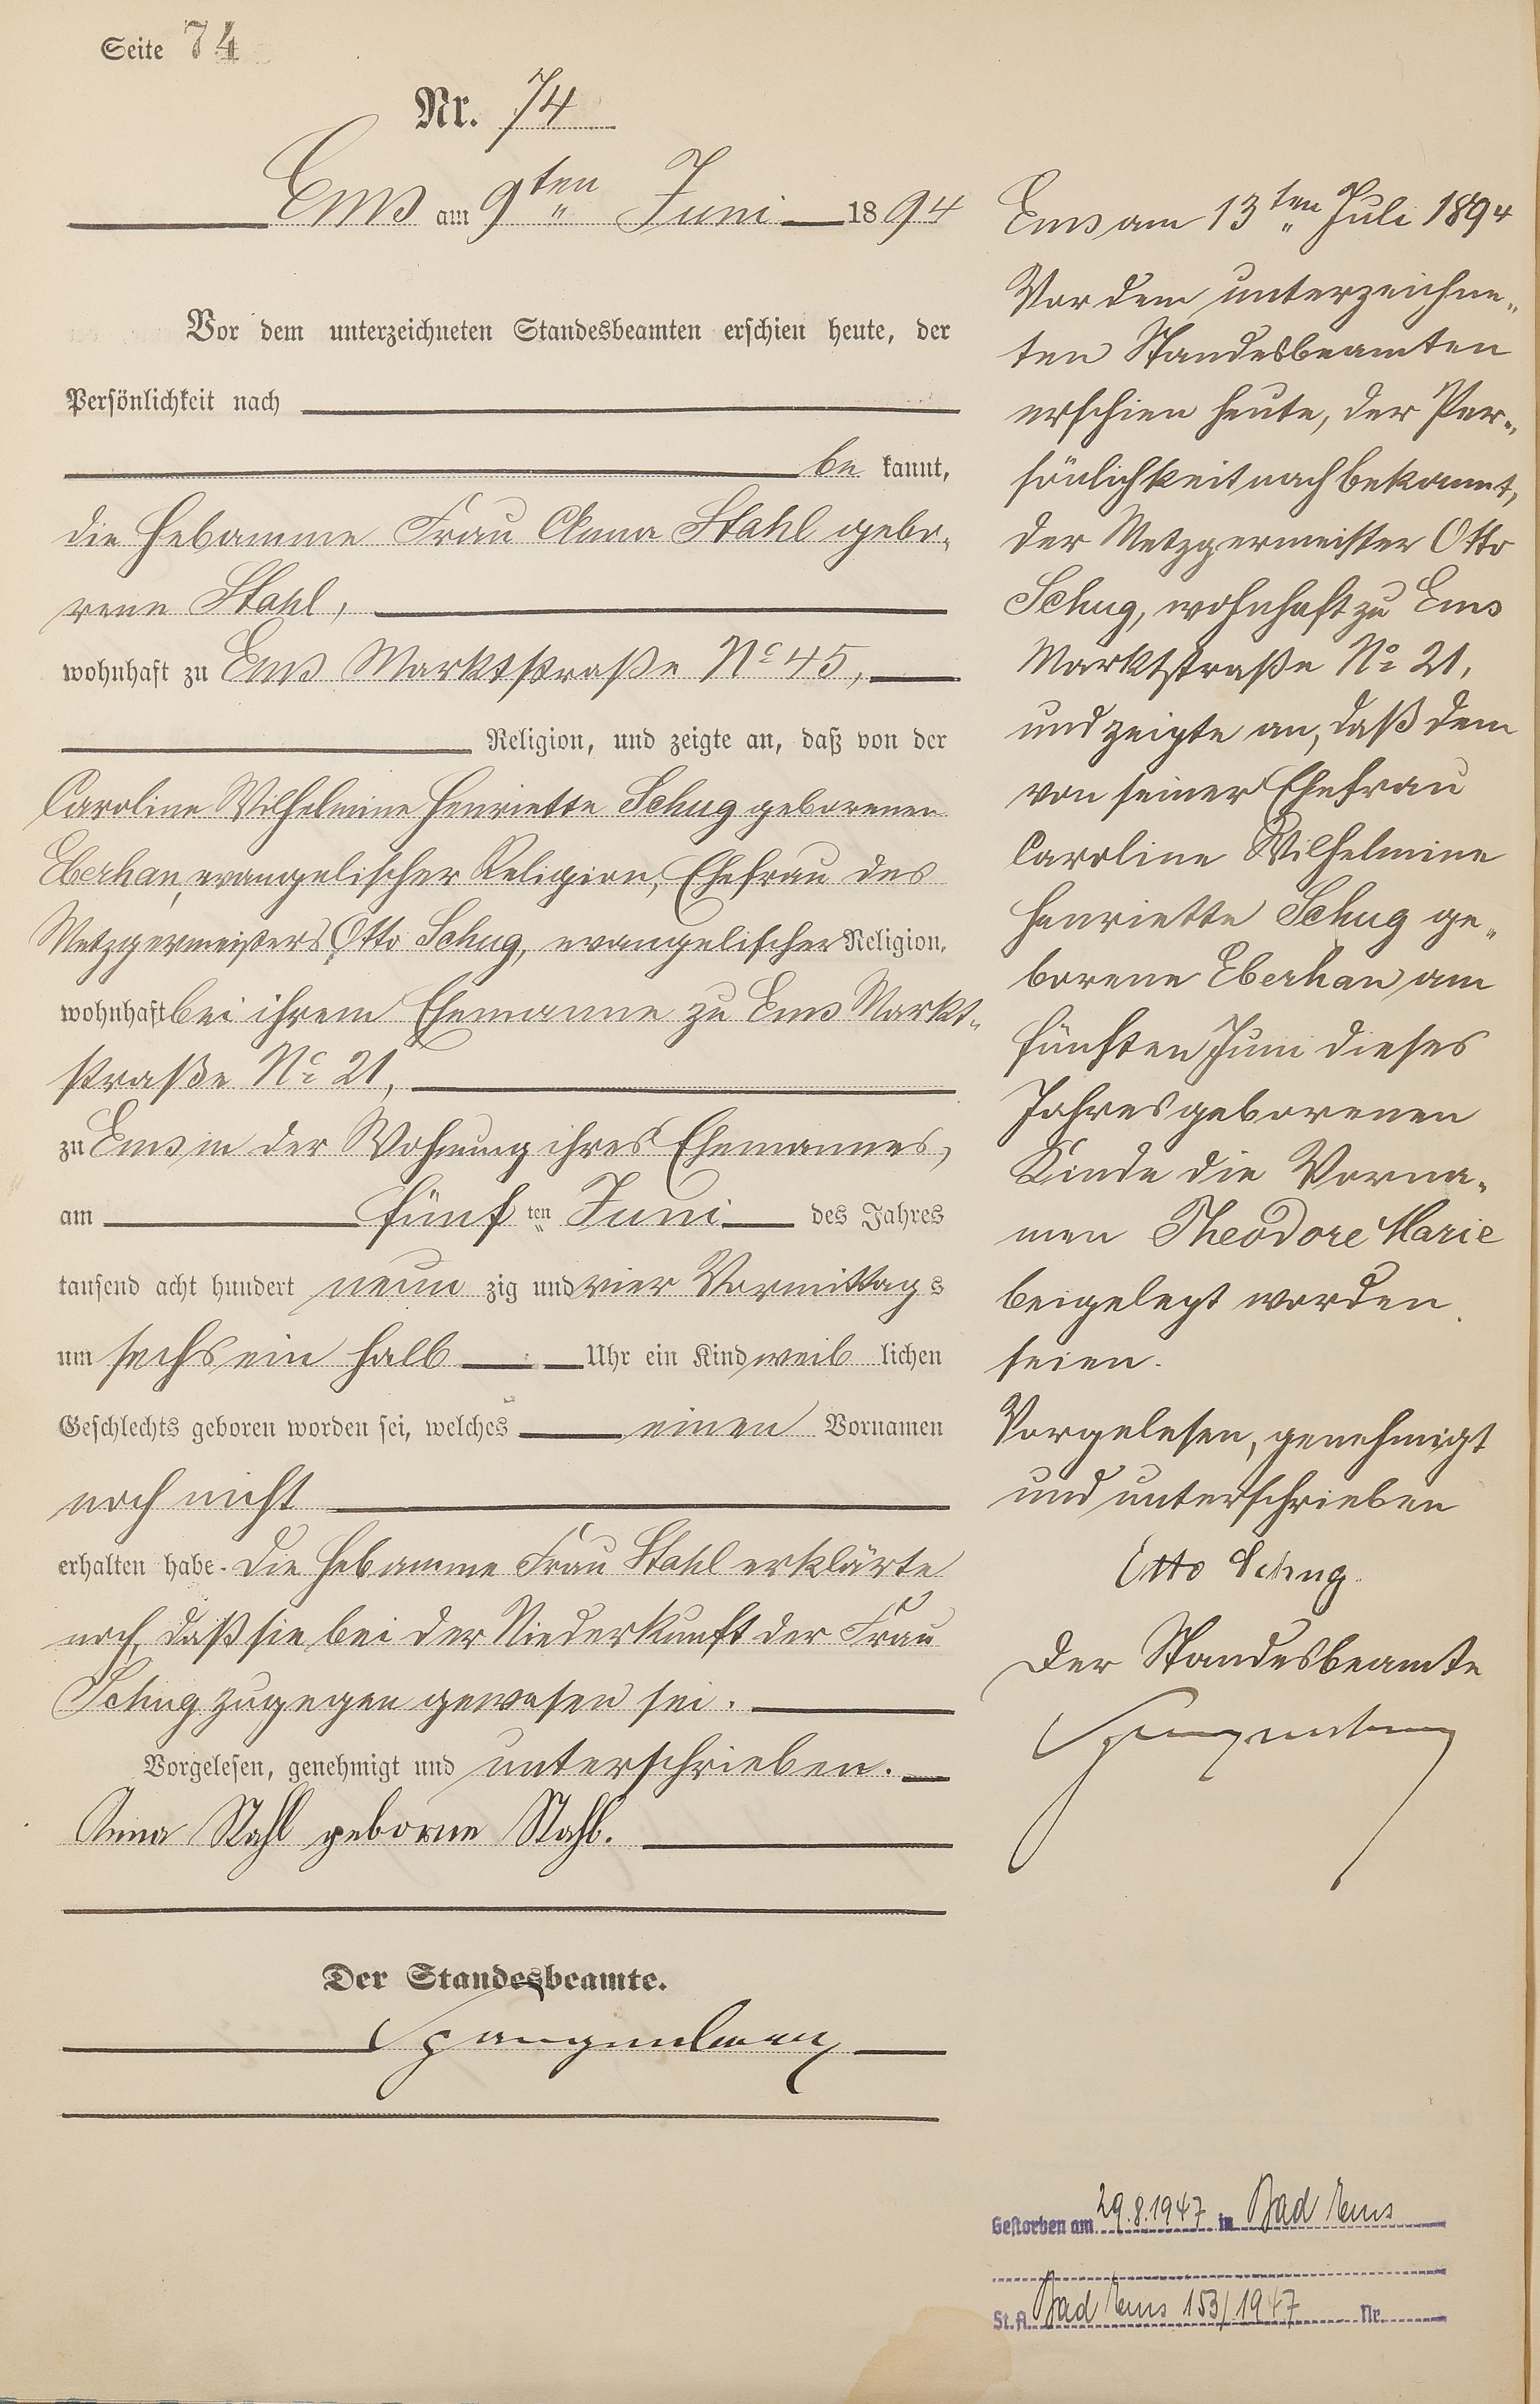 Seite 74
Nr. 74
Ems am 9ten Juni 1894
Vor dem unterzeichneten Standesbeamten erschien heute, der
Persönlichkeit nach
be kannt,
die Hebamme Frau Anna Stahl gebo-
rene Stahl,
wohnhaft zu Ems Marktstraße No 45,
Religion, und zeigte an, daß von der
Caroline Wilhelmine Henriette Schug geborenen
Eberhan, evangelischer Religion, Ehefrau des
Metzgermeisters Otto Schug, evangelischer Religion,
wohnhaft bei ihrem Ehemanne zu Ems Markt-
straße No 21,
zu Ems in der Wohnung ihres Ehemannes,
am fünf ten Juni des Jahres
tausend acht hundert neun zig und vier Vormittag s
um sechs ein halb Uhr ein Kind weib lichen
Geschlechts geboren worden sei, welches einen Vornamen
noch nicht
erhalten habe. Die Hebamme Frau Stahl erklärte
noch, daß sie bei der Niederkunft der Frau
Schug zugegen gewesen sei.
Vorgelesen, genehmigt und unterschrieben.
Anna Stahl geborne Stahl.
Der Standesbeamte.
Ems am 13ten Juli 1894
Vor dem unterzeichne-
ten Standesbeamten
erschien heute, der Per-
sönlichkeit nach bekannt,
der Metzgermeister Otto
Schug, wohnhaft zu Ems
Marktstraße No 21,
und zeigte an, daß dem
von seiner Ehefrau
Caroline Wilhelmine
Henriette Schug ge-
borene Eberhan am
fünften Juni dieses
Jahres geborenen
Kinde die Vorna-
men Theodore Marie
beigelegt worden
seien.
Vorgelesen, genehmigt
und unterschrieben
Otto Schug.
Der Standesbeamte
Gestorben am 29.8.1947 in Bad Ems
St.A. Bad Ems 153/1947 Nr.